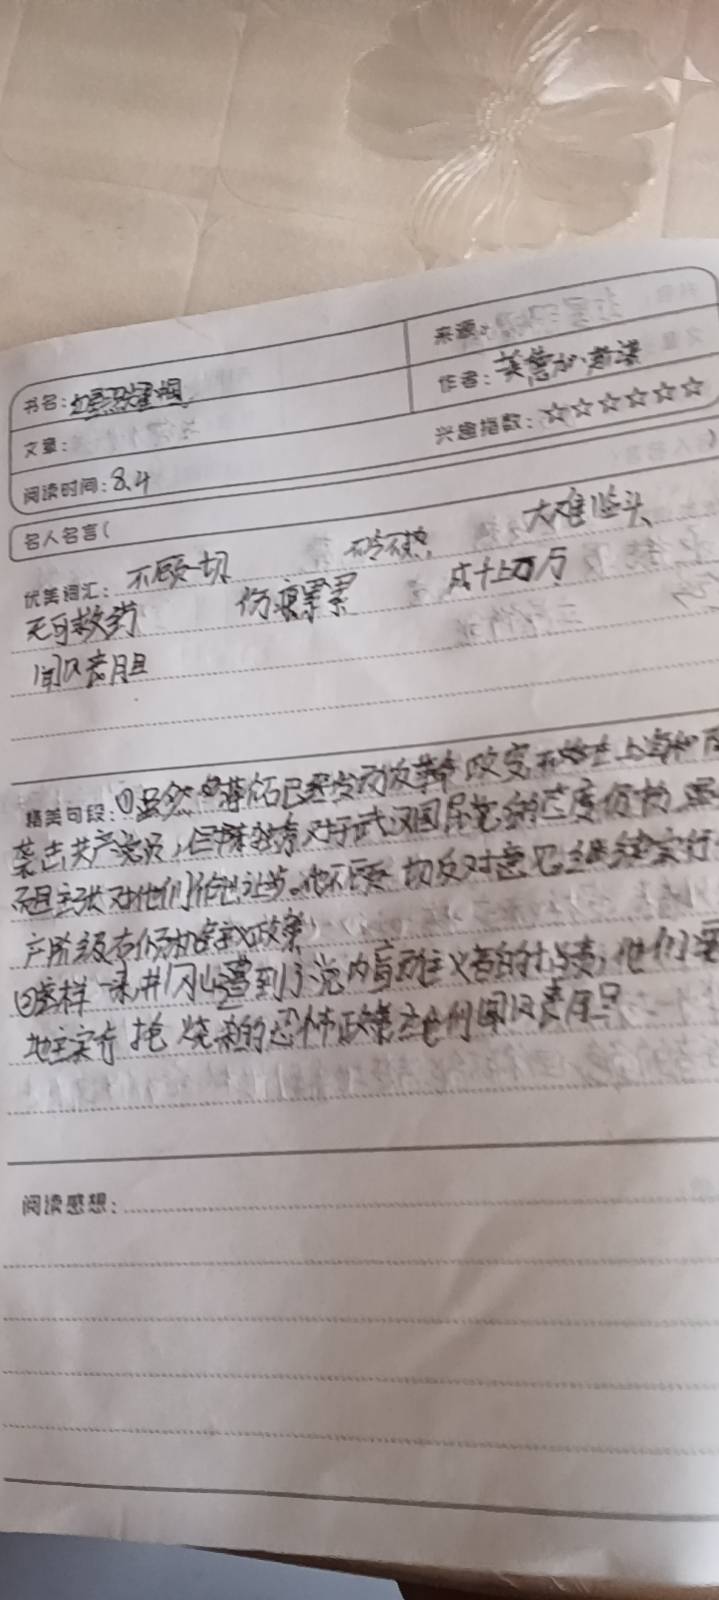 书名:红星照耀中国
来源:
文章:
作者:美 埃德加·斯诺
阅读时间:8.4
兴趣指数:☆☆☆☆☆☆
名人名言(
优美词汇: 不顾一切 不冷不热 大难临头
无可救药 伤痕累累 成千上万
闻风丧胆
精美句段:①虽然蒋介石已经发动反革命政变 在上海和
袭击共产党员,但陈独秀对于武汉国民党的态度仍
而且主张对他们作出让步。他不顾一切反对意见继续实行
产阶级右倾机会主义政策
②这样一来井冈山遭到了党内盲动主义者的指责,他们要
地主实行 抢 烧 杀的恐怖政策 让他们闻风丧胆
阅读感想: